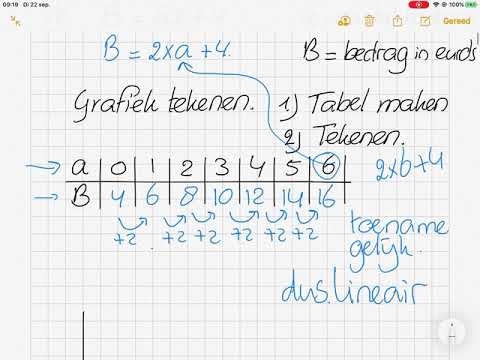 09:19 Di 22 sep. 100%
Gereed
B = 2xa+4. B = bedrag in euro's
Grafiek tekenen. 1) Tabel maken
2) Tekenen.
→ a 0 1 2 3 4 5 6 2xb+4
→ B 4 6 8 10 12 14 16
+2 +2 +2 +2 +2 +2 toename
gelijk.
dus lineair